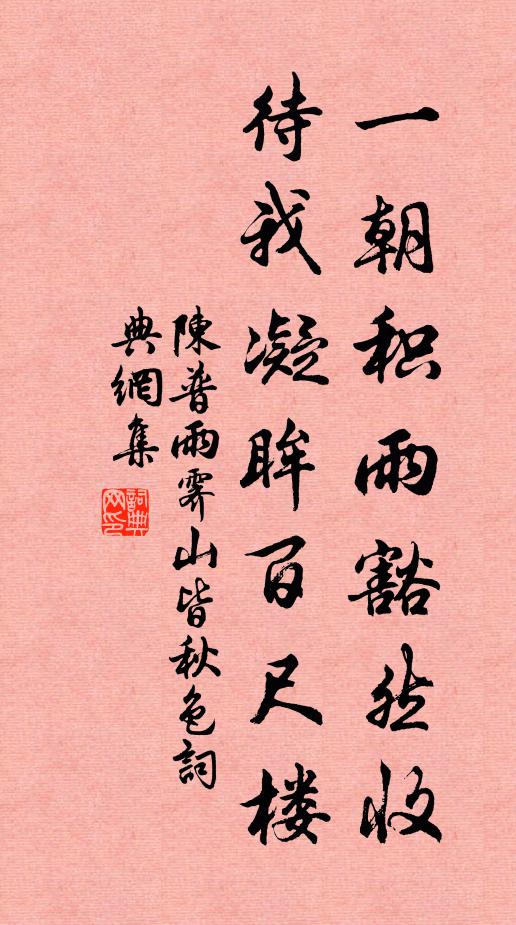 一朝积雨豁然收
待我凝眸百尺楼
陳普雨霽山皆秋色詞
典網集
詞典網印